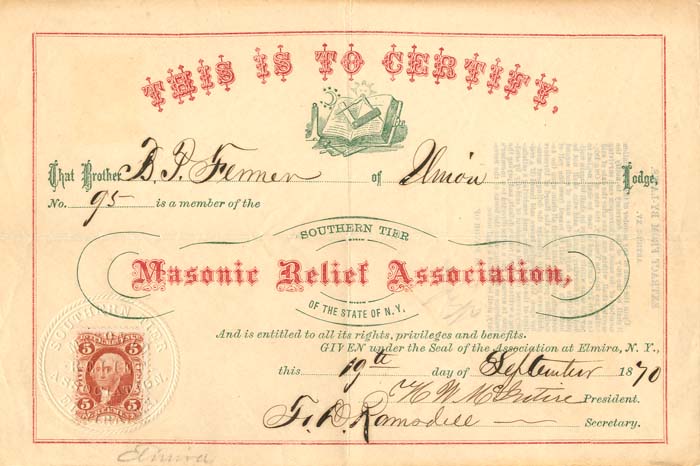 THIS IS TO CERTIFY,
That Brother B. J. Fermen of Union Lodge,
No. 95 is a member of the
SOUTHERN TIER
Masonic Relief Association,
OF THE STATE OF N.Y.
And is entitled to all its rights, privileges and benefits.
GIVEN under the Seal of the Association at Elmira, N. Y.,
this 19th day of September 1870
President.
Ramsdell Secretary.
SOUTHERN TIER
5 5
5 5
Elmira